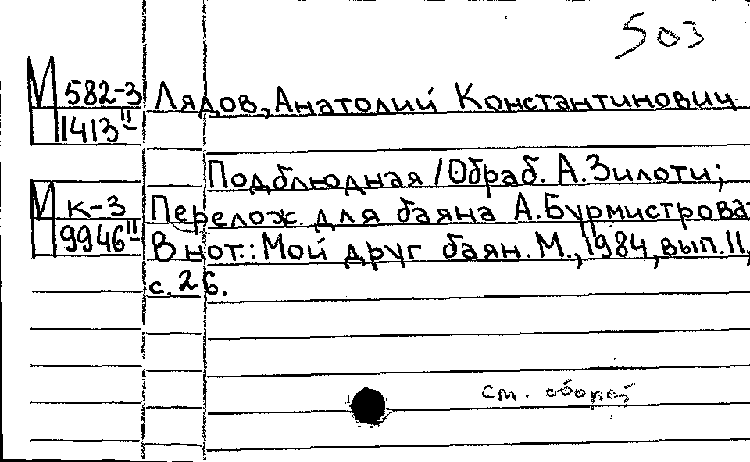 503
М 582-3 Лядов, Анатолий Константинович
1413 II
Подблюдная /Обраб. А. Зилоти;
М к-3 Перелож для баяна А. Бурмистрова
9946 II В нот.: Мой друг баян. М., 1984, вып. 11,
с. 26.
см. оборот